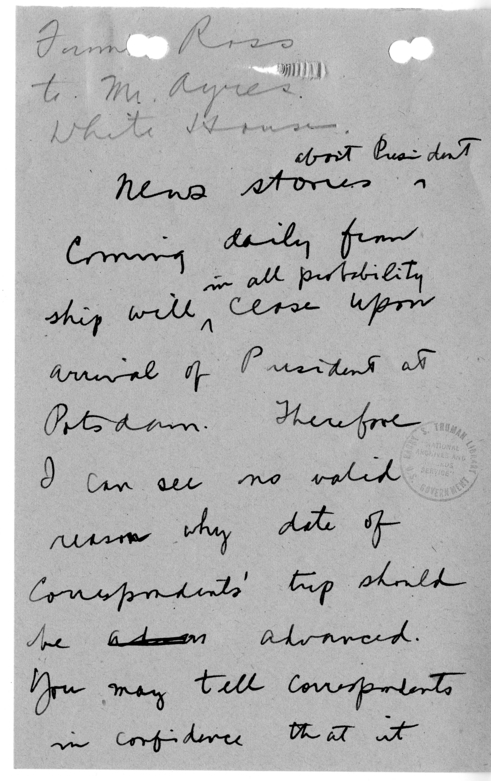 From Ross
to Mr. Ayres.
White House.
about President
News stories ^
Coming daily from
in all probability
ship will ^ cease upon
arrival of President at
Potsdam. Therefore
I can see no valid
reason why date of
Correspondents' trip should
be advanced.
You may tell correspondents
in confidence that it
HARRY S. TRUMAN LIBRARY
NATIONAL
ARCHIVES AND
U.S. GOVERNMENT